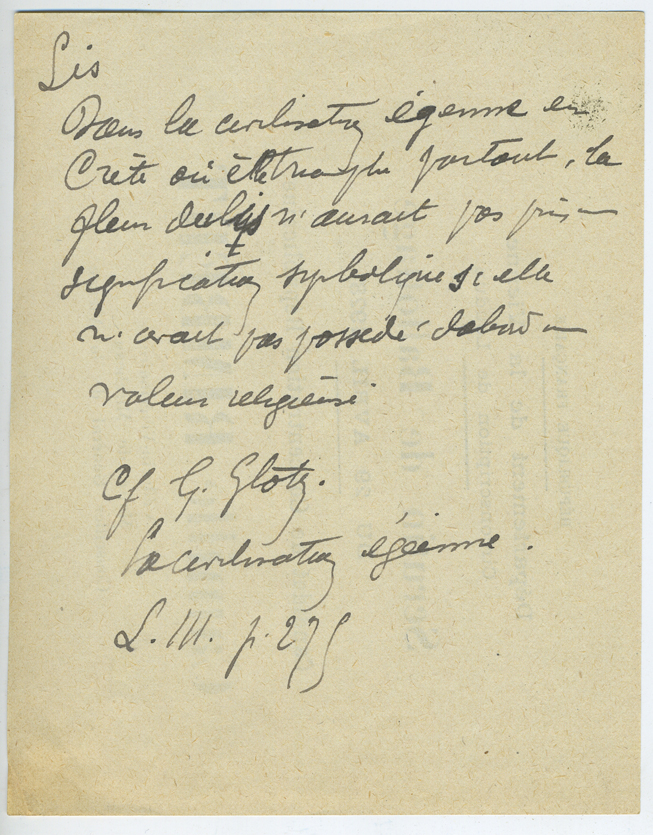 Lis
Dans la civilisation égenne en
Crète où elle triomphe partout, la
fleur de lys n'aurait pas pris un
signification symbolique si elle
n'avait pas possédé d'abord un
valeur religieuse
Cf G. Glotz.
La civilisation égéenne.
L. III. p. 275